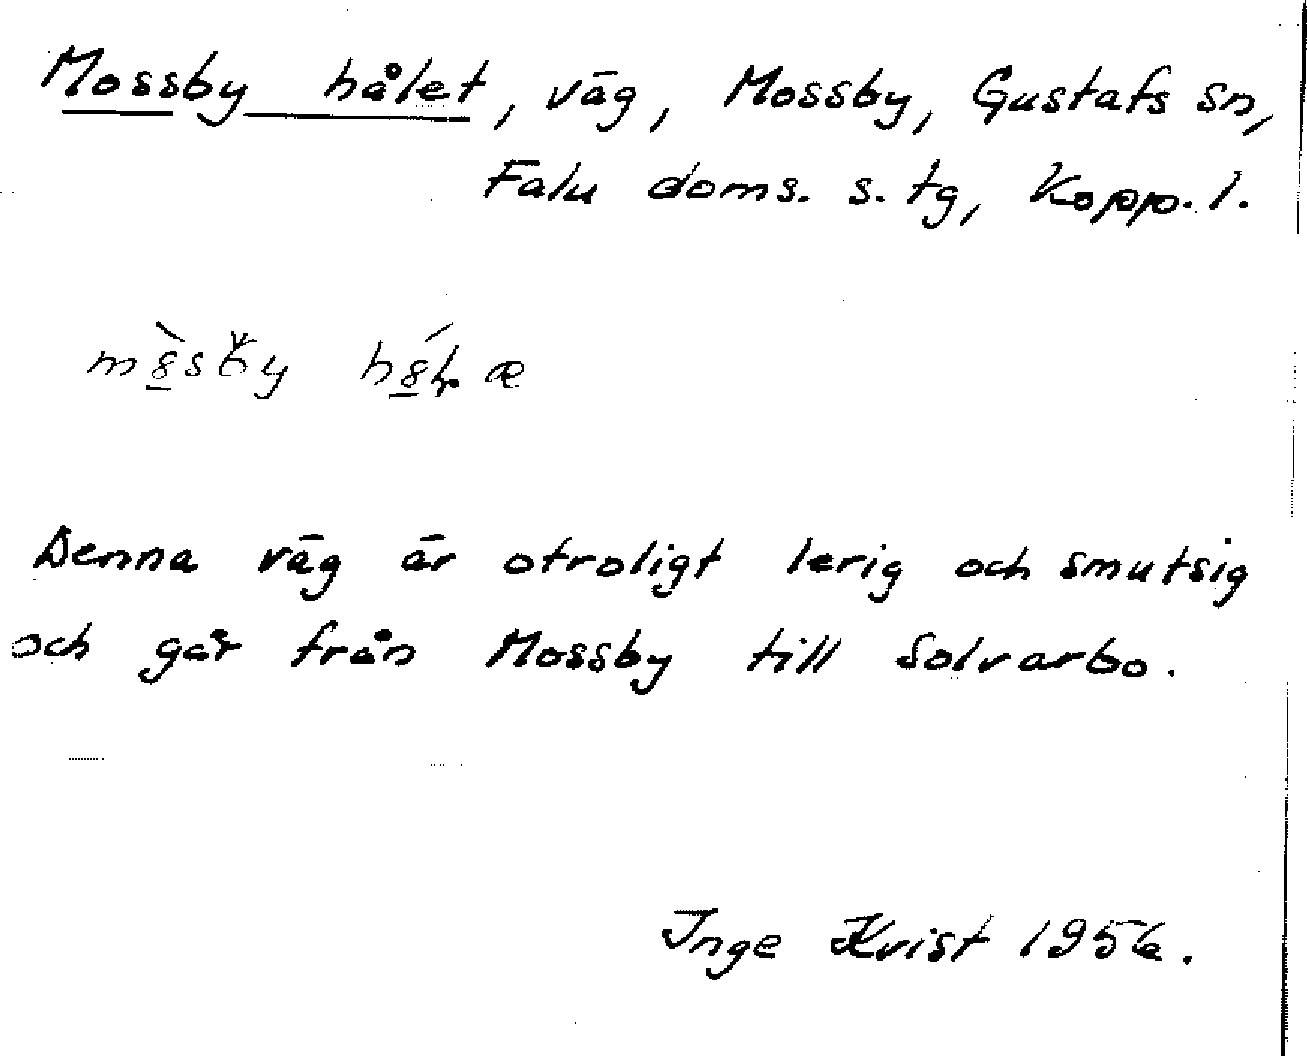 Mossby hålet, väg, Mossby, Gustafs sn,
Falu doms. s. tg, Kopp. l.
Denna väg är otroligt lerig och smutsig
och går från Mossby till Solvarbo.
Inge Kvist 1956.